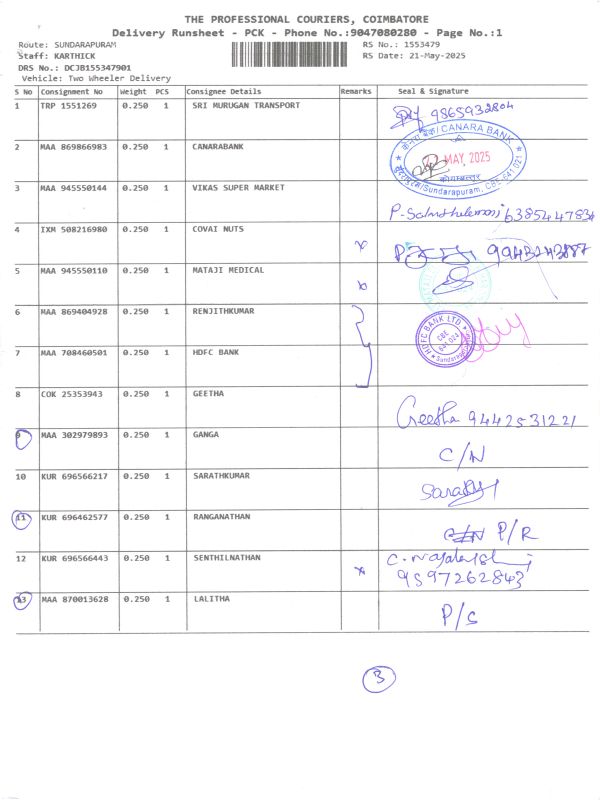 THE PROFESSIONAL COURIERS, COIMBATORE
Delivery Runsheet - PCK - Phone No.:9047080280 - Page No.:1
Route: SUNDARAPURAM RS No.: 1553479
Staff: KARTHICK RS Date: 21-May-2025
DRS No.: DCJB155347901
Vehicle: Two Wheeler Delivery
S No Consignment No Weight PCS Consignee Details Remarks Seal & Signature
1 TRP 1551269 0.250 1 SRI MURUGAN TRANSPORT 9865932804
2 MAA 869866983 0.250 1 CANARABANK
केनरा बैंक/CANARA BANK
MAY, 2025
कोयम्बत्तूर
/Sundarapuram, CBE-641 021
3 MAA 945550144 0.250 1 VIKAS SUPER MARKET
6385447834
4 IXM 508216980 0.250 1 COVAI NUTS x 9943243887
5 MAA 945550110 0.250 1 MATAJI MEDICAL
6 MAA 869404928 0.250 1 RENJITHKUMAR
HDFC BANK LTD.
CBE
641 024
Sundarapuram
7 MAA 708460501 0.250 1 HDFC BANK
8 COK 25353943 0.250 1 GEETHA
Geetha 9442531221
9 MAA 302979893 0.250 1 GANGA
C/N
10 KUR 696566217 0.250 1 SARATHKUMAR
11 KUR 696462577 0.250 1 RANGANATHAN
P/R
12 KUR 696566443 0.250 1 SENTHILNATHAN x
9597262843
13 MAA 870013628 0.250 1 LALITHA
P/S
3